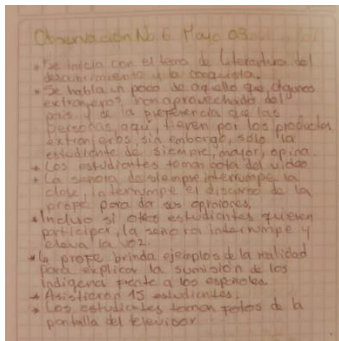 Observación No. 6 Mayo 03
• Se inicia con el tema de Literatura del
descubrimiento y la conquista.
• Se habla un poco de aquello que algunos
extranjeros han aprovechado del
país y de la preferencia que las
personas aquí, tienen por los productos
extranjeros, sin embargo, solo la
estudiante de siempre, mayor, opina.
• Los estudiantes toman nota del video
• La señora de siempre interrumpe la
clase, interrumpe el discurso de la
profe para dar sus opiniones.
• Incluso si otros estudiantes quieren
participar, la señora interrumpe y
eleva la voz.
• la profe brinda ejemplos de la realidad
para explicar la sumisión de los
indígenas frente a los españoles.
• Asistieron 15 estudiantes.
• Los estudiantes toman fotos de la
pantalla del televisor.